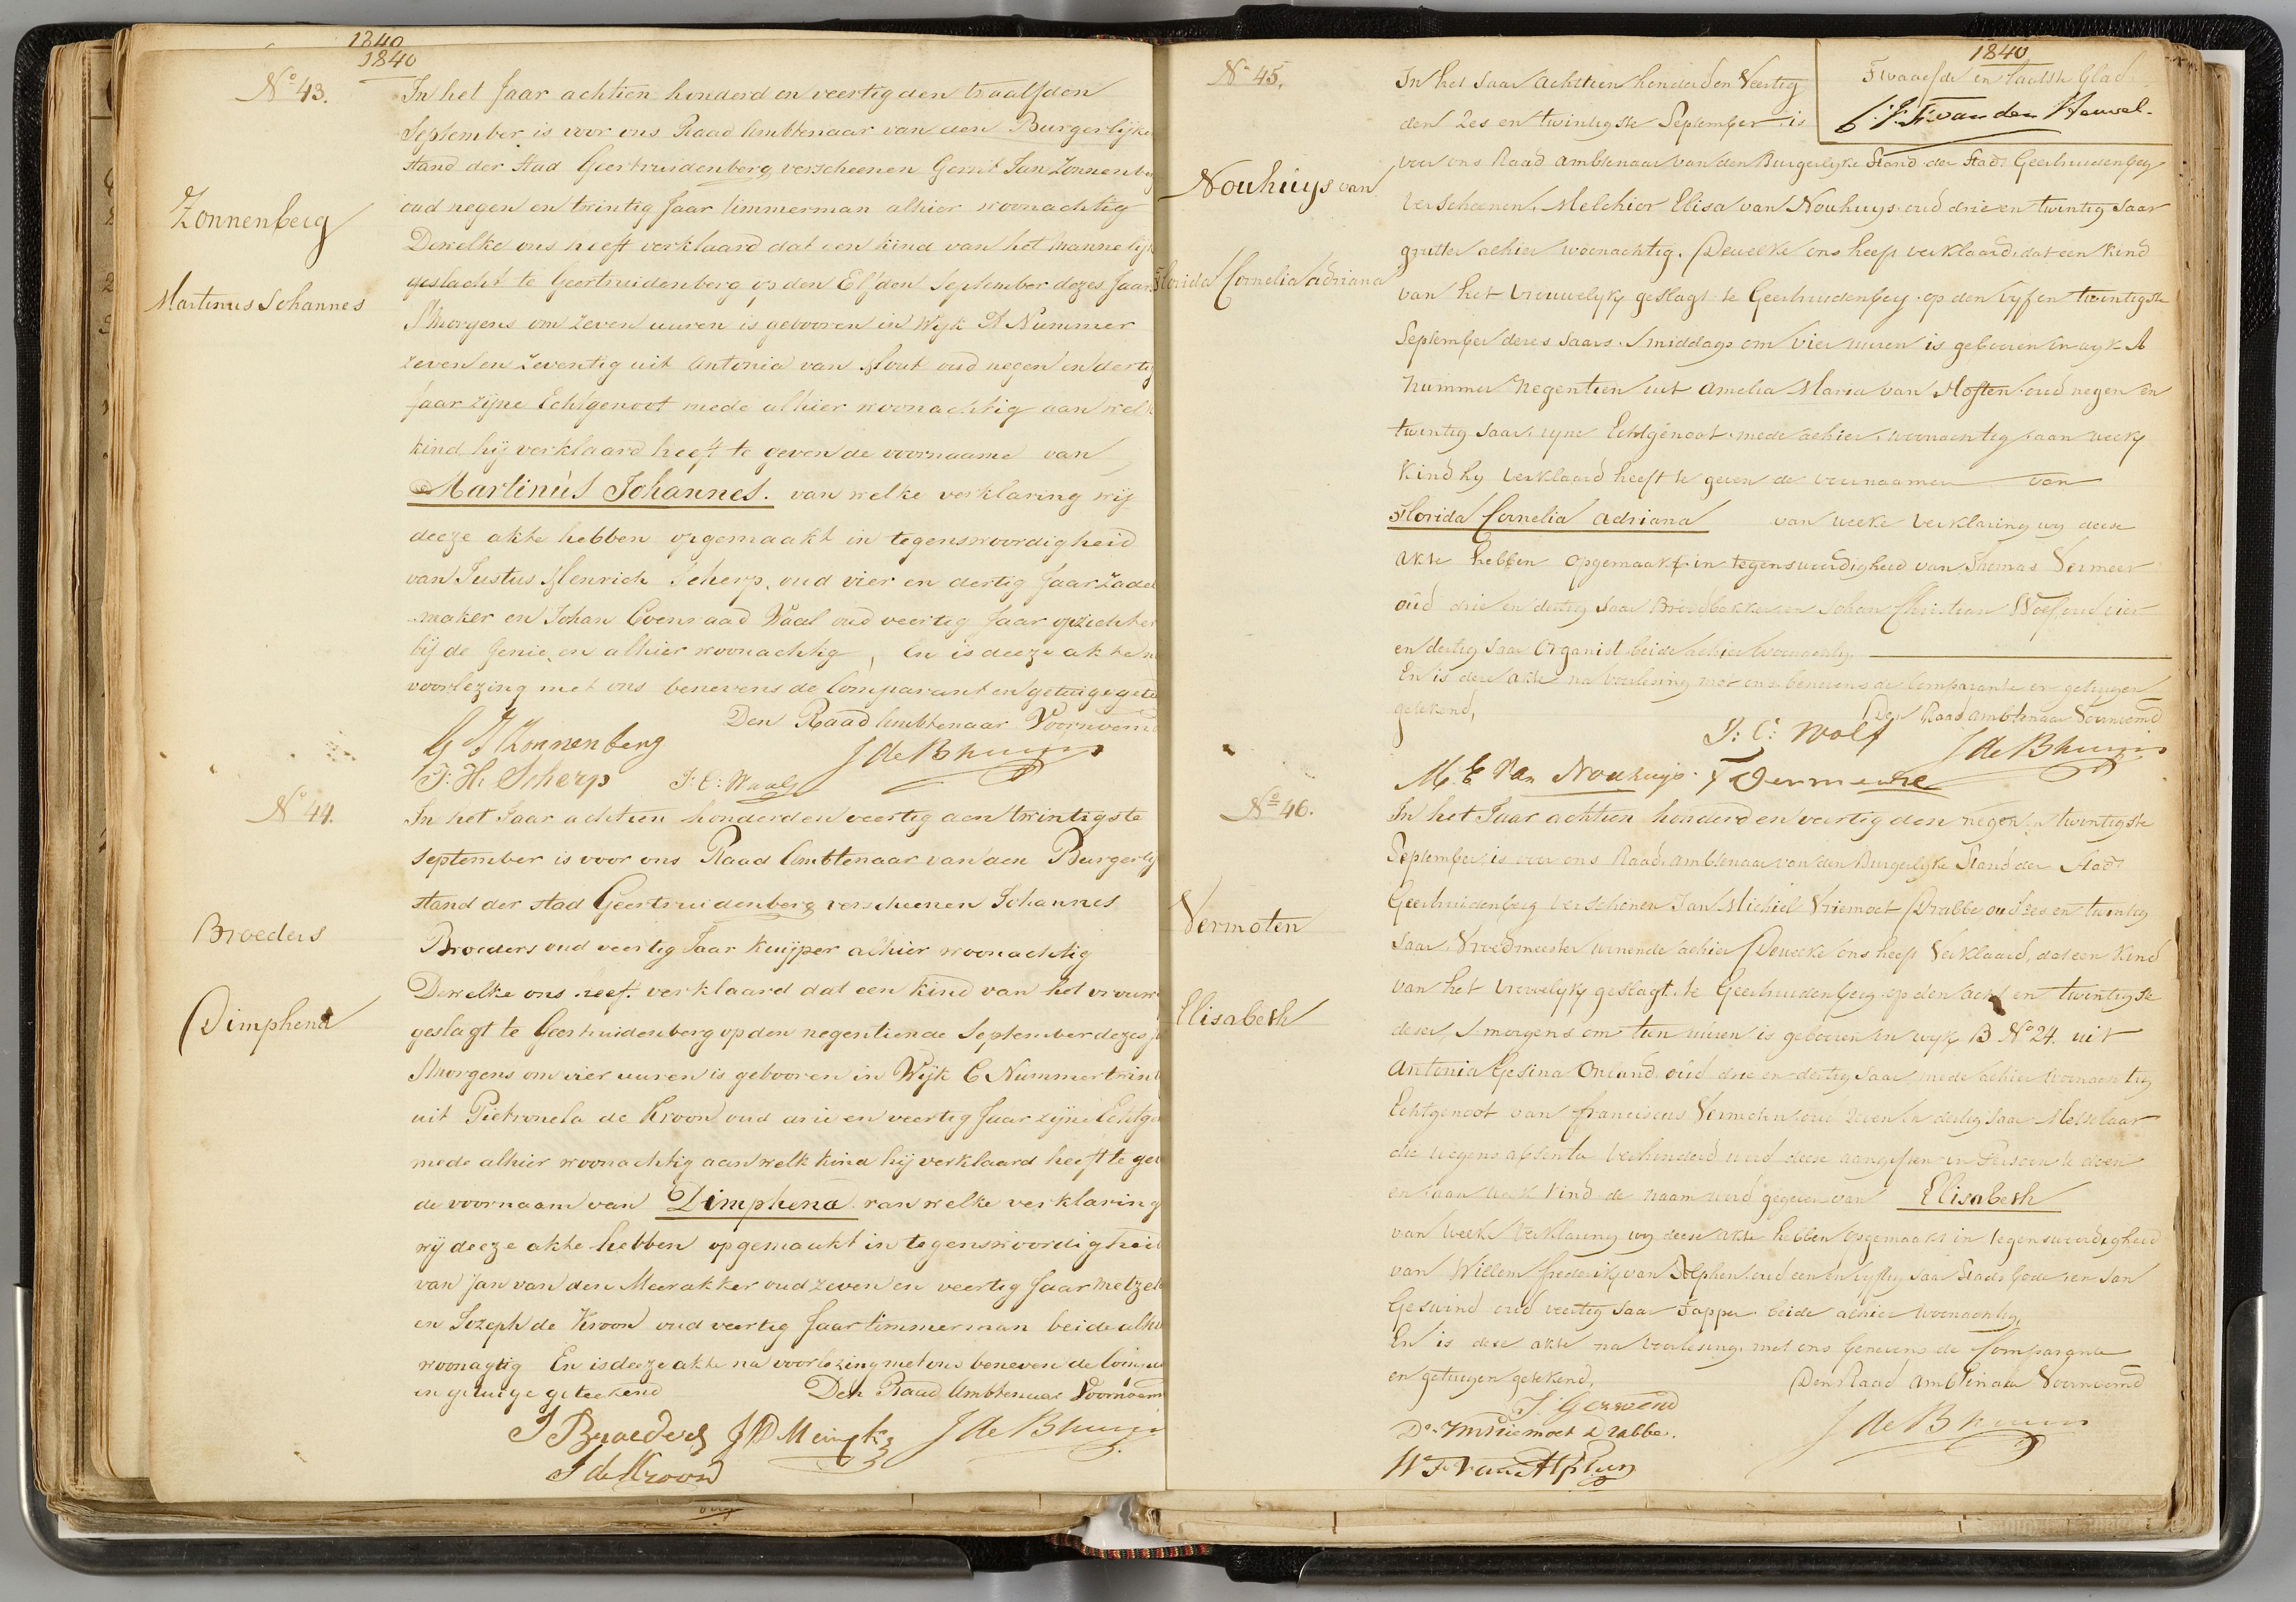 1840
1840
No 43.
In het Jaar achtien honderd en veertig den twaalfden
September is voor ons Raad Ambtenaar van den Burgerlijke
stand der stad Geertruidenberg verscheenen Gerrit Jan Zonnenberg
oud negen en twintig Jaar timmerman alhier woonachtig
Dewelke ons heeft verklaard dat een kind van het mannelijk
geslacht te Geertruidenberg op den Elfden September dezes Jaars
Smorgens om zeven uuren is gebooren in Wijk A Nummer
zeven en zeventig uit Antonia van Hout oud negen en dertig
Jaar zijne Echtgenoot mede alhier woonachtig aan welk
kind hij verklaard heeft te geven de voornaame van
Martinus Johannes. van welke verklaring wij
deeze akte hebben opgemaakt in tegenswoordigheid
van Justus Henrich Scherp, oud vier en dertig Jaar Zadel
maker en Johan Coenraad Waal oud veertig Jaar opzichter
bij de Genie en alhier woonachtig, En is deeze akte na
voorlezing met ons benevens de Comparant en getuige getee
Den Raad Ambtenaar Voornoemd
Zonnenberg
Martinus Johannes
G J Zonnenberg
J: H: Scherp J: C: Waal J de Bruijn
No 44.
In het Jaar achtien honderd en veertig den twintigste
September is voor ons Raad Ambtenaar van den Burgerlij
stand der stad Geertruidenberg verscheenen Johannes
Broeders oud veertig Jaar kuijper alhier woonachtig
Dewelke ons heeft verklaard dat een kind van het vrouw
geslagt te Geertruidenberg op den negentiende September dezes J
Smorgens om vier uuren is gebooren in Wijk C Nummer twint
uit Pietronela de Kroon oud drie en veertig Jaar zijne Echtge
mede alhier woonachtig aan welk kind hij verklaard heeft te gev
de voornaam van Dimphena van welke verklaring
wij deeze akte hebben opgemaakt in tegenswoordigheid
van Jan van den Meerakker oud zeven en veertig Jaar metzel
en Jozeph de Kroon oud veertig Jaar timmerman beide alhie
woonagtig En is deeze akte na voorlezing met ons beneven de Compa
en getuige geteekend Den Raad Ambtenaar Voornoem
Broeders
Dimphena
J Broeders J de Bruijn
J de Kroon
1840
Twaalfde en laatste blad
van den Heuvel.
No 45.
In het Jaar Achttien honderd en Veertig
den Zes en twintigste September is
voor ons Raad Ambtenaar van den Burgerlyke Stand der Stad Geertruidenberg
Verscheenen, Melchior Elisa van Nouhuys oud drie en twintig Jaar
grutter alhier woonachtig. Dewelke ons heeft verklaard, dat een kind
van het vrouwelyk geslagt te Geertruidenberg op den vyf en twintigste
September dezes Jaars Smiddags om vier uuren is gebooren in wyk A
Nummer Negentien uit Amelia Maria van Hoften oud negen en
twintig Jaar, zyne Echtgenoot mede alhier woonachtig, aan welk
kind hy verklaard heeft te geven de voornaamen van
Florida Cornelia Adriana van welke verklaring wy deese
akte hebben opgemaakt in tegenswoordigheid van Thomas Vermeer
oud drie en dertig Jaar Broodbakker en Johan Christian Wolf oud vier
en dertig Jaar Organist beide alhier woonachtig
En is dese akte na voorlesing met ons benevens de Comparante en getuigen
getekend, Den Raad ambtenaar Vernoemd
Nouhuys van
Florida Cornelia Adriana
J: C: Wolf J de Bruijn
M. E Van Nouhuys. T Vermeere
No 46.
In het Jaar achtien honderd en veertig den negen en twintigste
September is voor ons Raad ambtenaar van den Burgerlyke Stand der Stad
Geertruidenberg verschenen Jan Michiel Vriemoet Drabbe oud zes en twintig
Jaar, Vroedmeester wonende alhier Dewelke ons heeft Verklaard, dat een kind
van het vrouwelyk geslagt te Geertruidenberg op den acht en twintigste
deser, Smorgens om tien uuren is gebooren in wyk B No 24. uit
Antonia Gesina Onland oud drie en dertig Jaar mede alhier woonachtig
Echtgenoot van Franciscus Vermoten oud zeven en dertig Jaar Metselaar
die wegens absentie verhinderd werd deese aangiften in Persoon te doen
en aan welk kind de naam werd gegeven van Elisabeth
van welke verklaring wy deese akte hebben opgemaakt in tegenswoordigheid
van Willem Frederik van Alphen oud een en vyftig Jaar Stads bode en Jan
Geswind oud veertig Jaar Tapper beide alhier woonachtig,
En is dese akte na voorlesing met ons benevens de Comparante
en getuigen getekend, Den Raad ambtenaar Vernoemd
Vermoten
Elisabeth
J Geswend
Vriemoet Drabbe. J de Bruijn
W F van Alphen